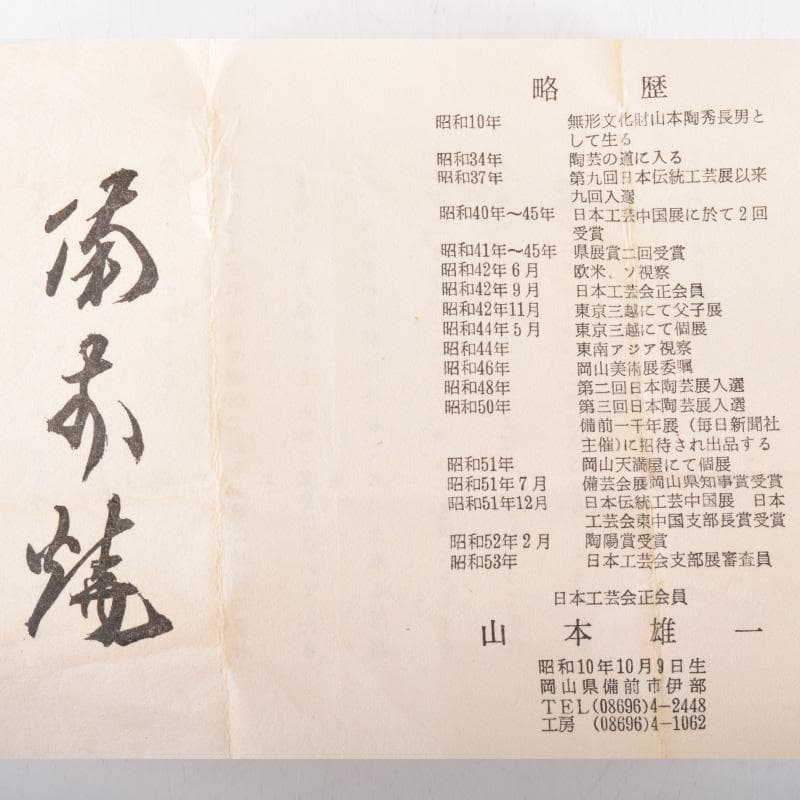 略歴
昭和10年 無形文化財山本陶秀長男と
して生る
昭和34年 陶芸の道に入る
昭和37年 第九回日本伝統工芸展以来
九回入選
昭和40年〜45年 日本工芸中国展に於て2回
受賞
昭和41年〜45年 県展賞二回受賞
昭和42年6月 欧米、ソ視察
昭和42年9月 日本工芸会正会員
昭和42年11月 東京三越にて父子展
昭和44年5月 東京三越にて個展
昭和44年 東南アジア視察
昭和46年 岡山美術展委嘱
昭和48年 第二回日本陶芸展入選
昭和50年 第三回日本陶芸展入選
備前一千年展(毎日新聞社
主催)に招待され出品する
昭和51年 岡山天満屋にて個展
昭和51年7月 備芸会展岡山県知事賞受賞
昭和51年12月 日本伝統工芸中国展 日本
工芸会東中国支部長賞受賞
昭和52年2月 陶陽賞受賞
昭和53年 日本工芸会支部展審査員
日本工芸会正会員
山本雄一
昭和10年10月9日生
岡山県備前市伊部
TEL(08696)4-2448
工房 (08696)4-1062
備前焼